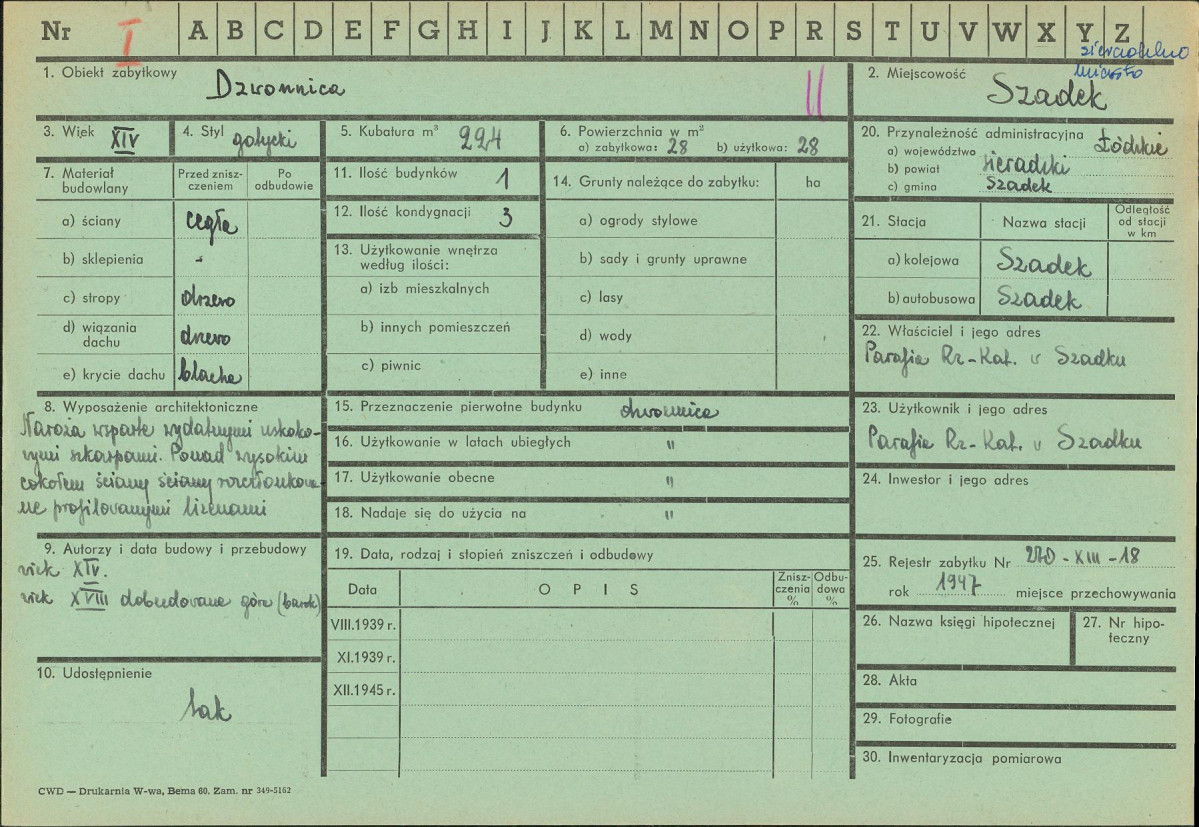 Nr I A B C D E F G H I J K L M N O P R S T U V W X Y Z
1. Obiekt zabytkowy
Dzwonnica
||
2. Miejscowość
miasto
Szadek
3. Wiek XIV
4. Styl gotycki
5. Kubatura m³ 224
6. Powierzchnia w m²
a) zabytkowa: 28 b) użytkowa: 28
20. Przynależność administracyjna
a) województwo Łódzkie
b) powiat sieradzki
c) gmina Szadek
7. Materiał budowlany
Przed zniszczeniem
Po odbudowie
a) ściany cegła
b) sklepienia -
c) stropy drzewo
d) wiązania dachu drzewo
e) krycie dachu blacha
11. Ilość budynków 1
12. Ilość kondygnacji 3
13. Użytkowanie wnętrza
według ilości:
a) izb mieszkalnych
b) innych pomieszczeń
c) piwnic
14. Grunty należące do zabytku: ha
a) ogrody stylowe
b) sady i grunty uprawne
c) lasy
d) wody
e) inne
21. Stacja
Nazwa stacji
Odległość
od stacji
w km
a) kolejowa Szadek
b) autobusowa Szadek
22. Właściciel i jego adres
Parafia Rz-Kat. w Szadku
23. Użytkownik i jego adres
Parafia Rz-Kat. w Szadku
24. Inwestor i jego adres
8. Wyposażenie architektoniczne
Naroża wsparte wydatnymi uskoko-
wymi szkarpami. Ponad wysokim
cokołem ściany ściany rozczłonkowa-
ne profilowanymi lizenami
15. Przeznaczenie pierwotne budynku dzwonnica
16. Użytkowanie w latach ubiegłych "
17. Użytkowanie obecne "
18. Nadaje się do użycia na "
9. Autorzy i data budowy i przebudowy
wiek XIV.
wiek XVIII dobudowano górę (barok)
19. Data, rodzaj i stopień zniszczeń i odbudowy
Data
OPIS
Znisz-
czenia
%
Odbu-
dowa
%
VIII.1939 r.
XI.1939 r.
XII.1945 r.
25. Rejestr zabytku Nr 270-XIII-18
rok 1947 miejsce przechowywania
26. Nazwa księgi hipotecznej
27. Nr hipo-
teczny
28. Akta
29. Fotografie
30. Inwentaryzacja pomiarowa
10. Udostępnienie
tak
CWD — Drukarnia W-wa, Bema 60. Zam. nr 349-5162